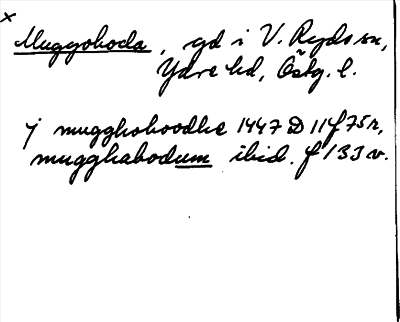 x
Muggoboda, gd i V. Ryds sn,
Ydre hd, Östg. l.
j mugghoboodhe 1447 D 11 f 75 r,
mugghabodum ibid. f 133 v.